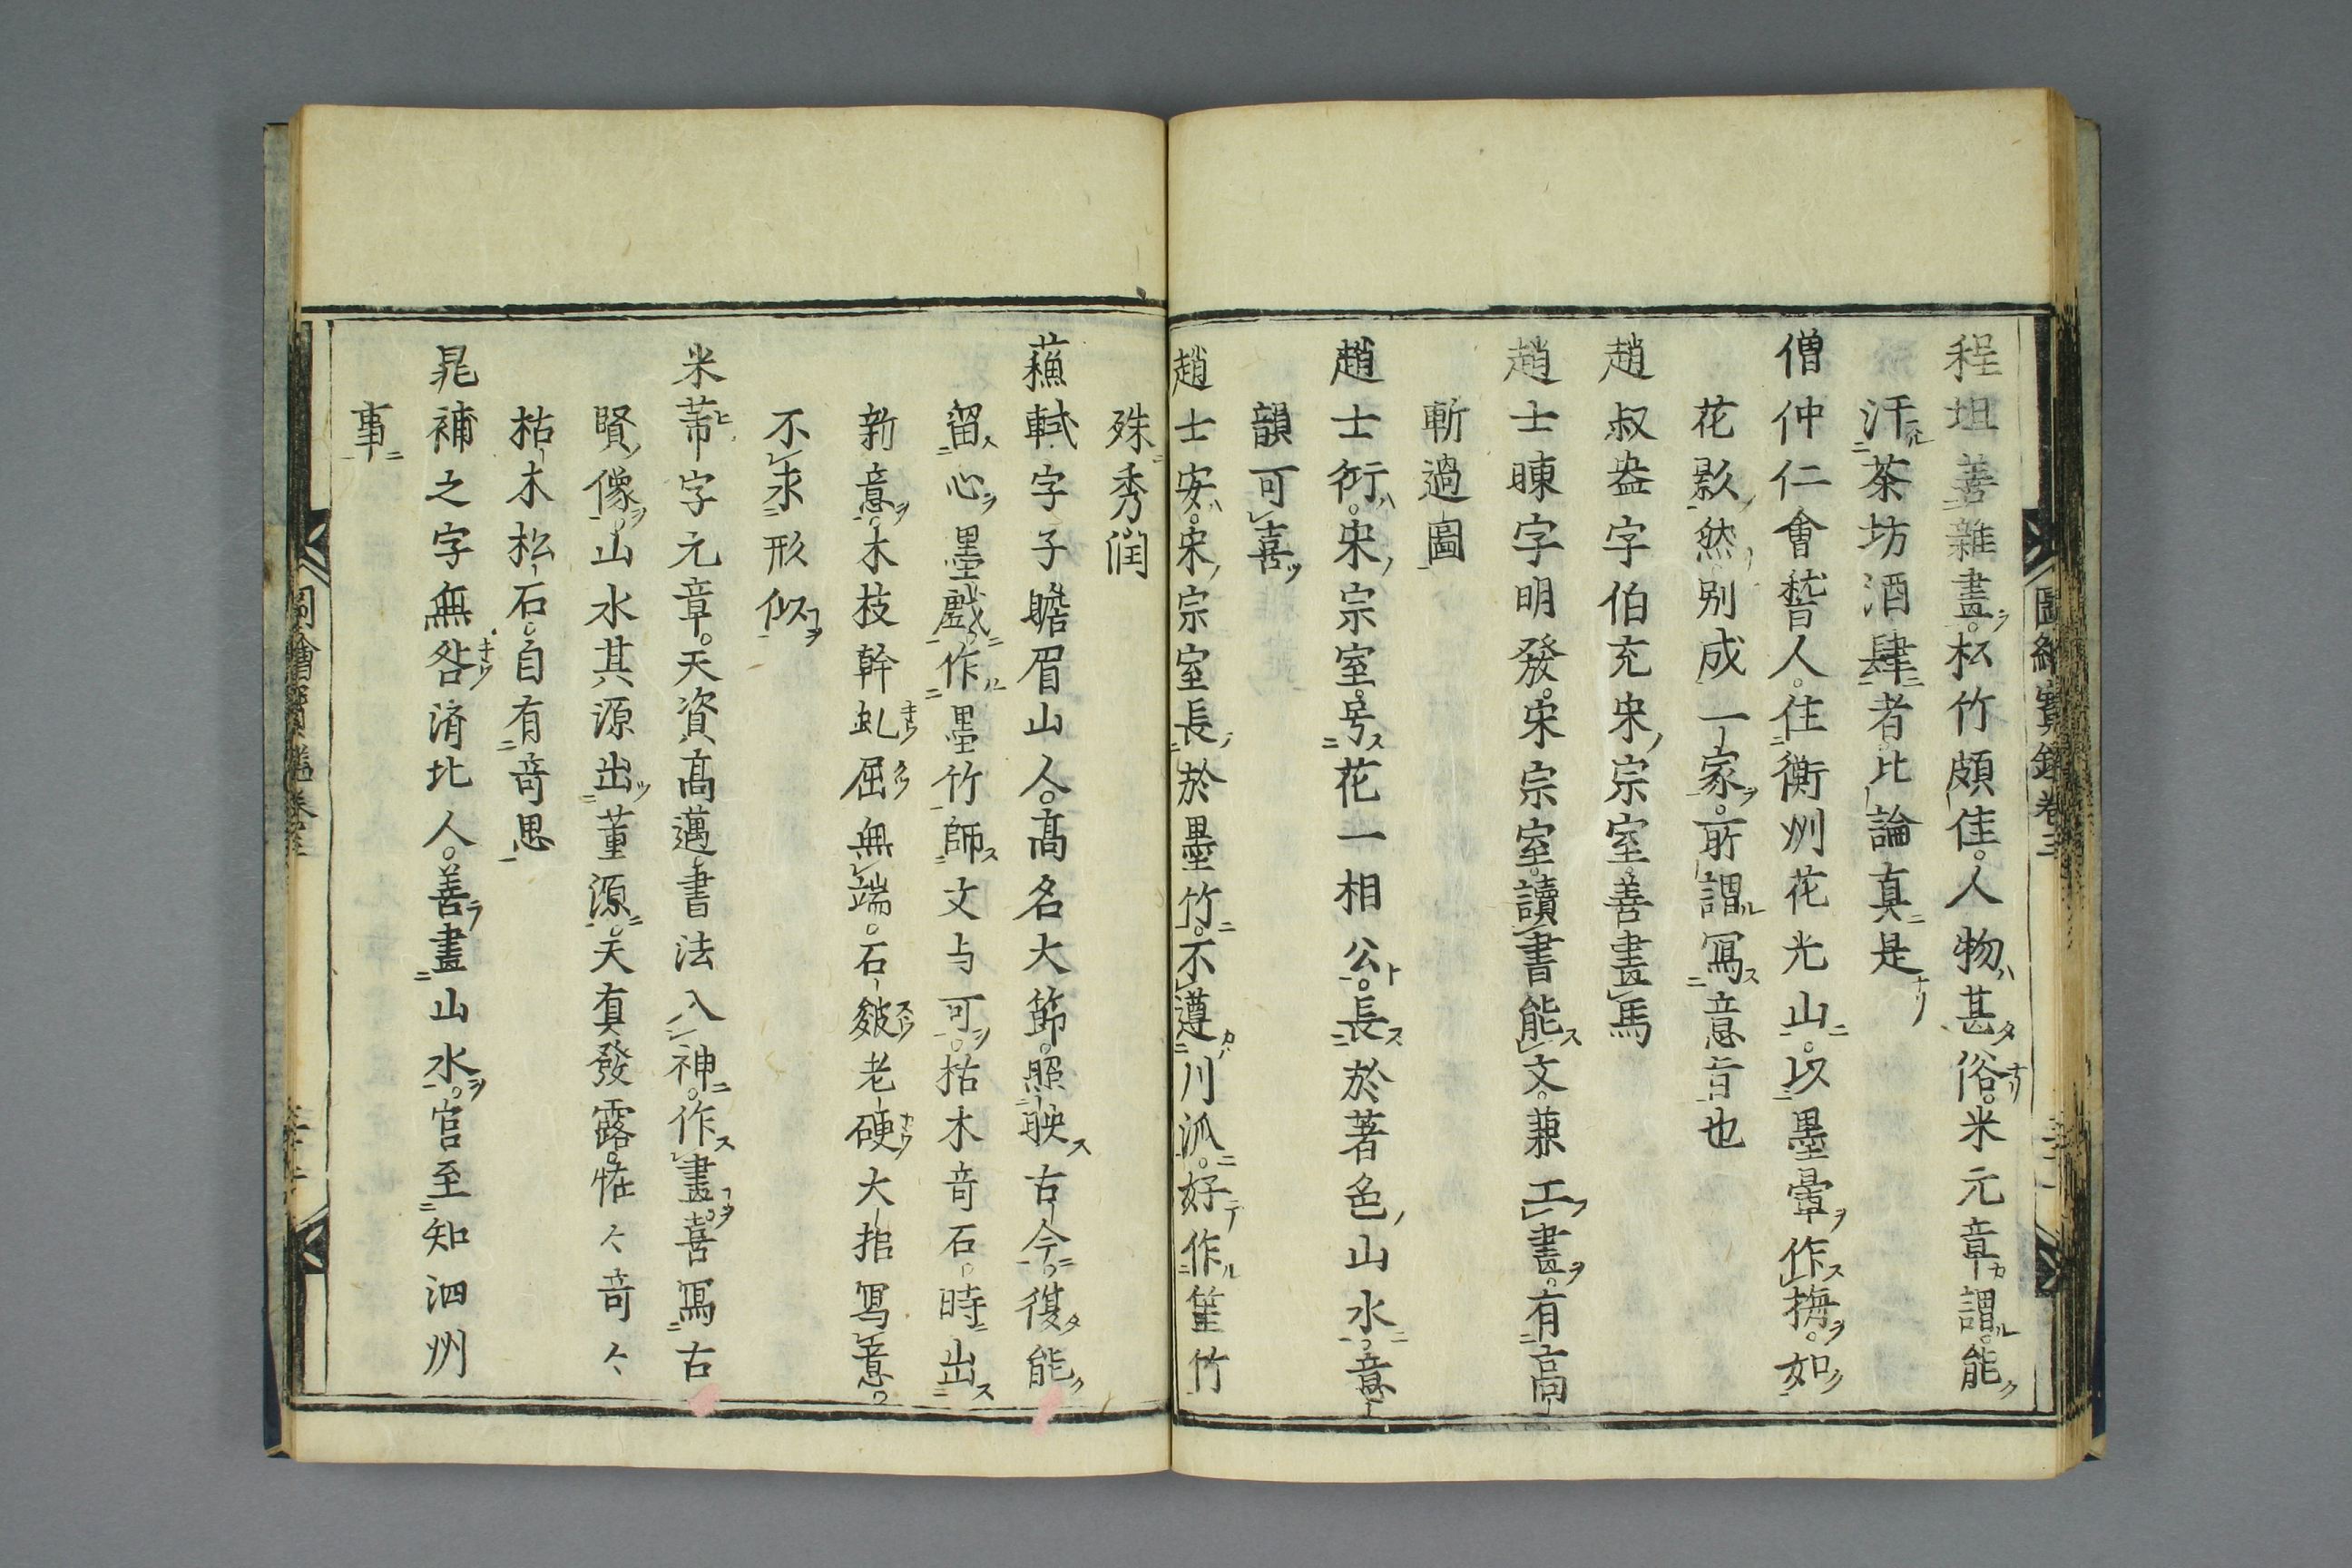 程坦善雜畫松竹頗佳人物甚俗米元章謂能
汗茶坊酒肆者比論真是
僧仲仁會稽人住衡州花光山以墨暈作梅如
花影然别成一家所謂寫意者也
趙叔盎字伯充宋宗室善畫馬
趙士暕字明發宋宗室讀書能文兼工畫有高
斬過圖
趙士衍宋宗室号花一相公長於著色山水意
韻可喜
趙士安宋宗室長於墨竹不遵川泒好作筀竹
殊秀潤
蘇軾字子瞻眉山人高名大節照映古今復能
留心墨戲作墨竹師文与可枯木竒石時出
新意木枝幹虬屈無端石皴老硬大抵寫意
不求形似
米芾字元章天資高邁書法入神作畫喜寫古
賢像山水其源出董源天真發露恠々竒々
枯木松石自有竒思
晁補之字無咎済北人善畫山水官至知泗州
事
圖繪寳鑑卷三
圖繪寳鑑卷三